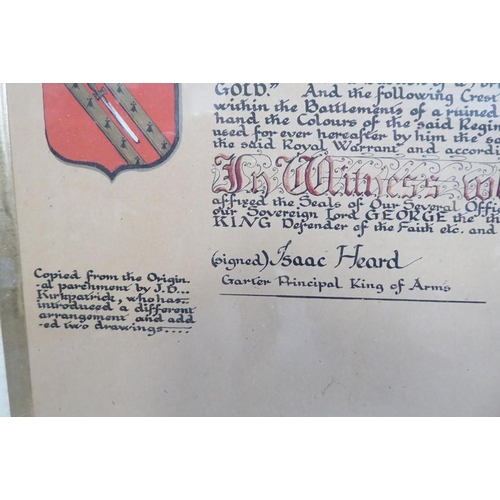 GOLD." And the following Crest
within the Battlements of a ruined
hand the Colours of the said Regi
used for ever hereafter by him the sa
the said Royal Warrant and accordi
In Witness w
affixed the Seals of Our Several Offic
our Sovereign Lord GEORGE the th
KING Defender of the Faith etc. and
(signed) Isaac Heard
Garter Principal King of Arms
Copied from the Origin-
al parchment by J.D...
Kirkpatrick, who has
introduced a different
arrangement and add
-ed two drawings....